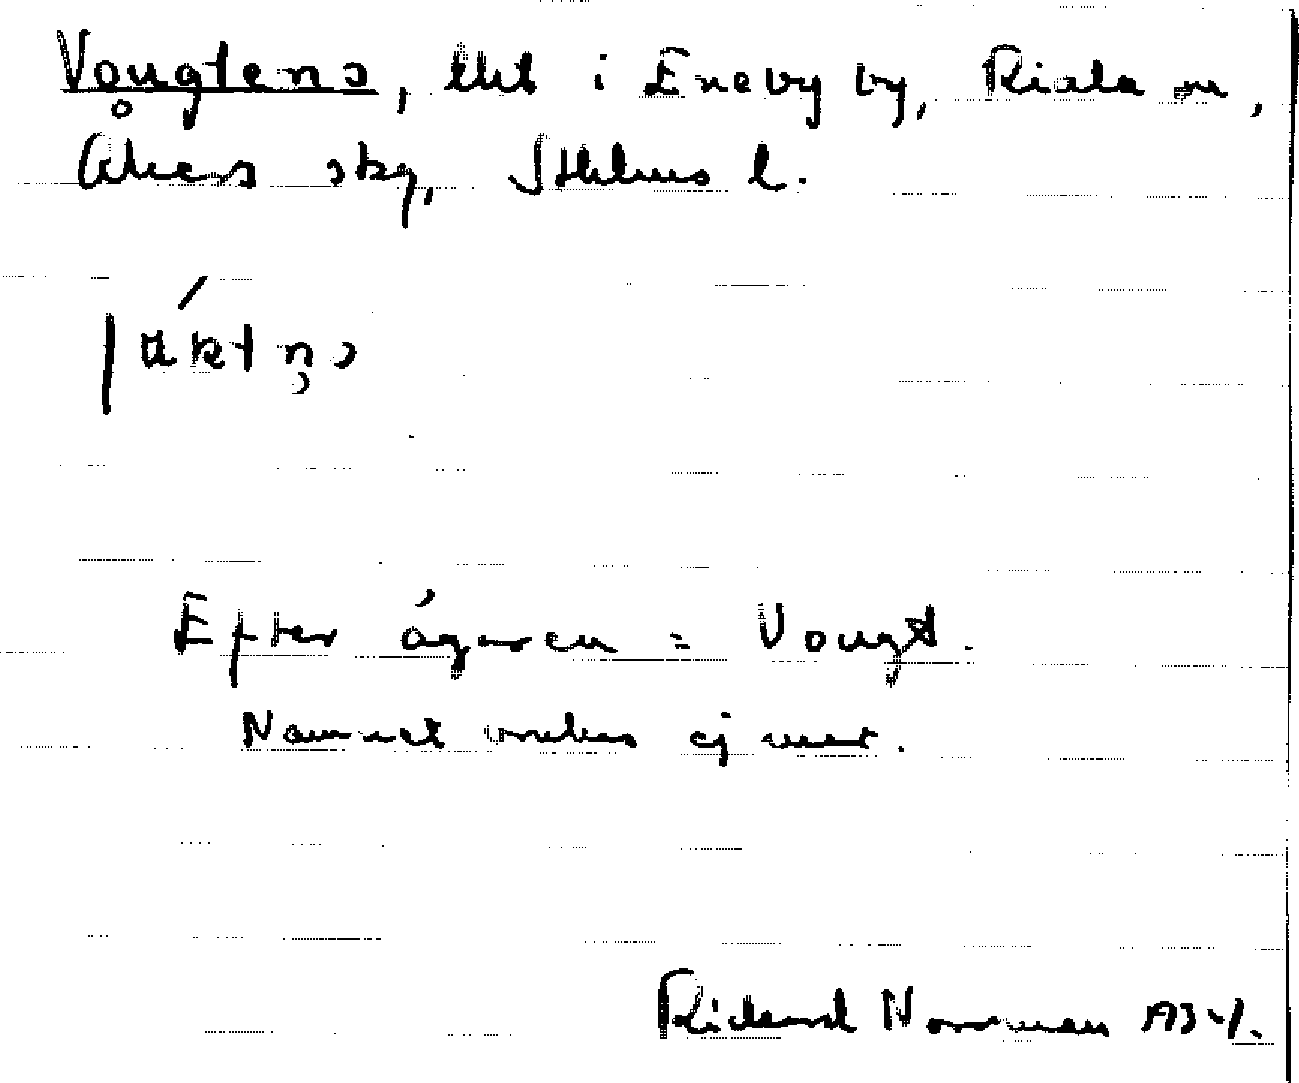 Vougtens, lht i Eneby by, Riala sn,
Åkers skg, Sthlms l.
Efter ägaren = Vougt.
Namnet brukas ej mer.
Rickard Norrman